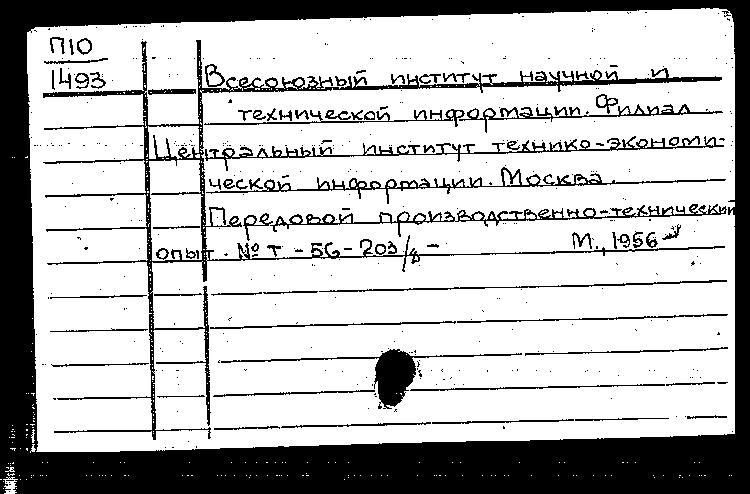 П10
1493
Всесоюзный институт научной и
технической информации. Филиал
Центральный институт технико-экономи-
ческой информации. Москва.
Передовой производственно-технический
опыт. № Т-56-203/8-
М., 1956-